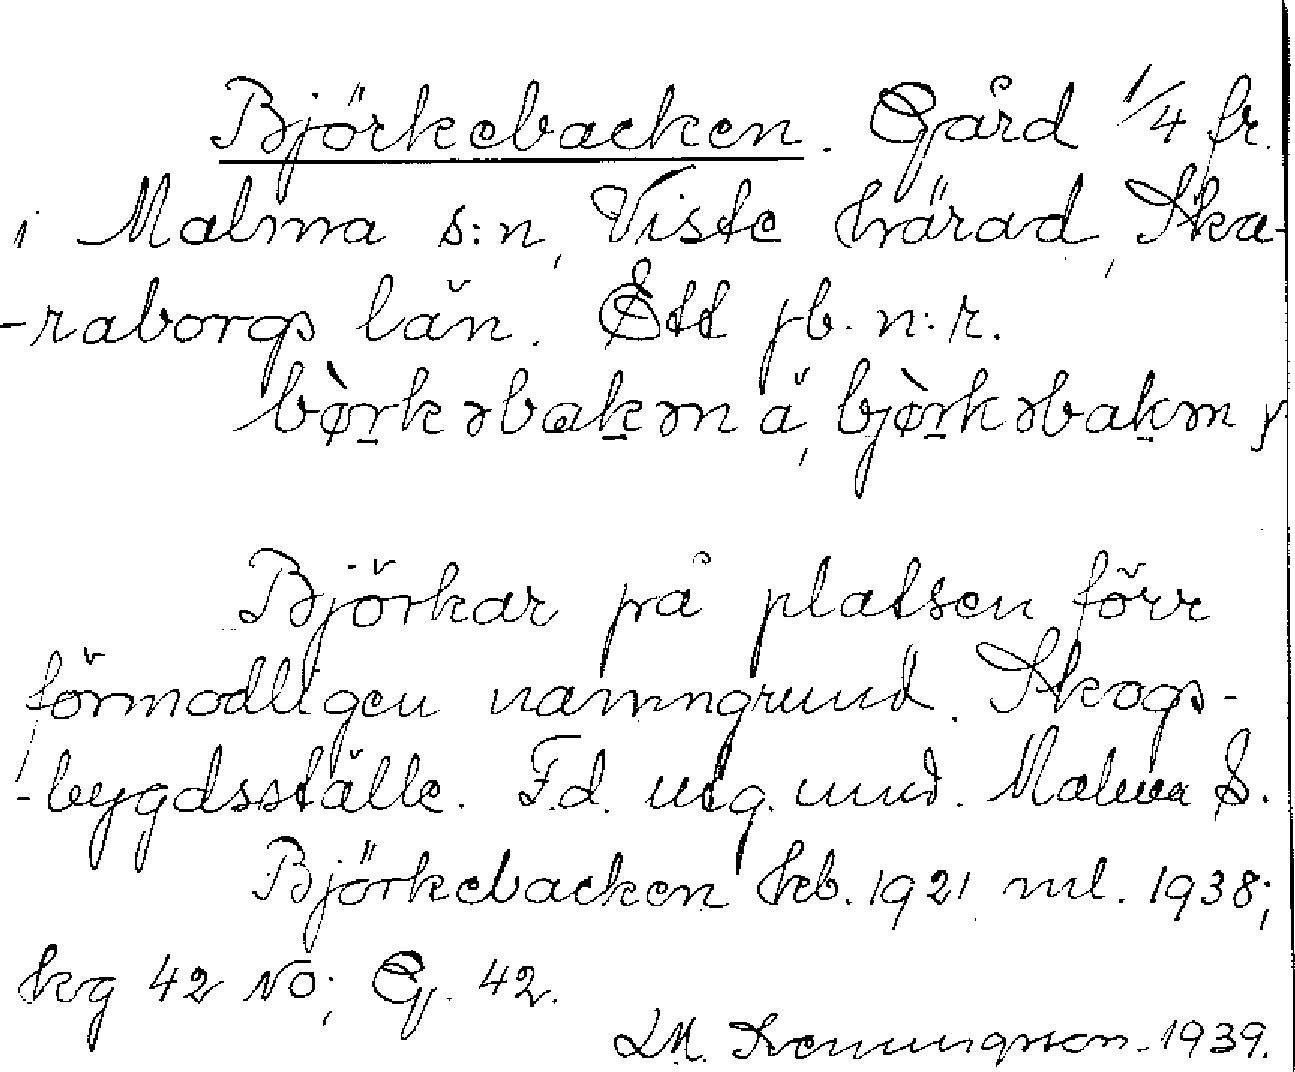 Björkebacken. Gård 1/4 fr.
i Malma s:n, Viste härad, Ska-
-raborgs län. Ett jb. n:r.
bø̀rkəbakən ä, bjø̀rkəbakən y
Björkar på platsen förr
förmodligen namngrund. Skogs-
-bygdsställe. F.d. utg. und. Malma S.
Björkebacken kb. 1921 ml. 1938;
kg 42 NO; G. 42.
LM. 1939.